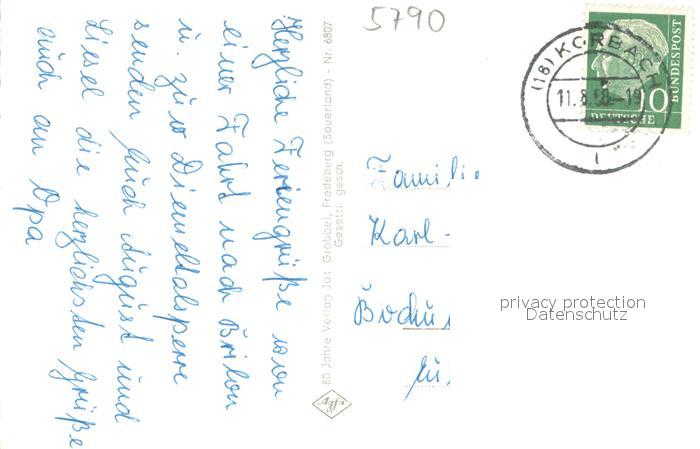 5790
Herzliche Feriengrüße von
einer Fahrt nach Brilon
u. zur Diemeltalsperre
senden Euch August und
Liesel die herzlichsten Grüße
auch an Opa
80 Jahre Verlag Jos. Grobbel, Fredeburg (Sauerland) - Nr. 6807
Gesetzl. gesch.
Agfa
(16) KORBACH
11.8.58-19
1
10
DEUTSCHE
BUNDESPOST
Famili
Karl-
Bochu
privacy protection
Datenschutz